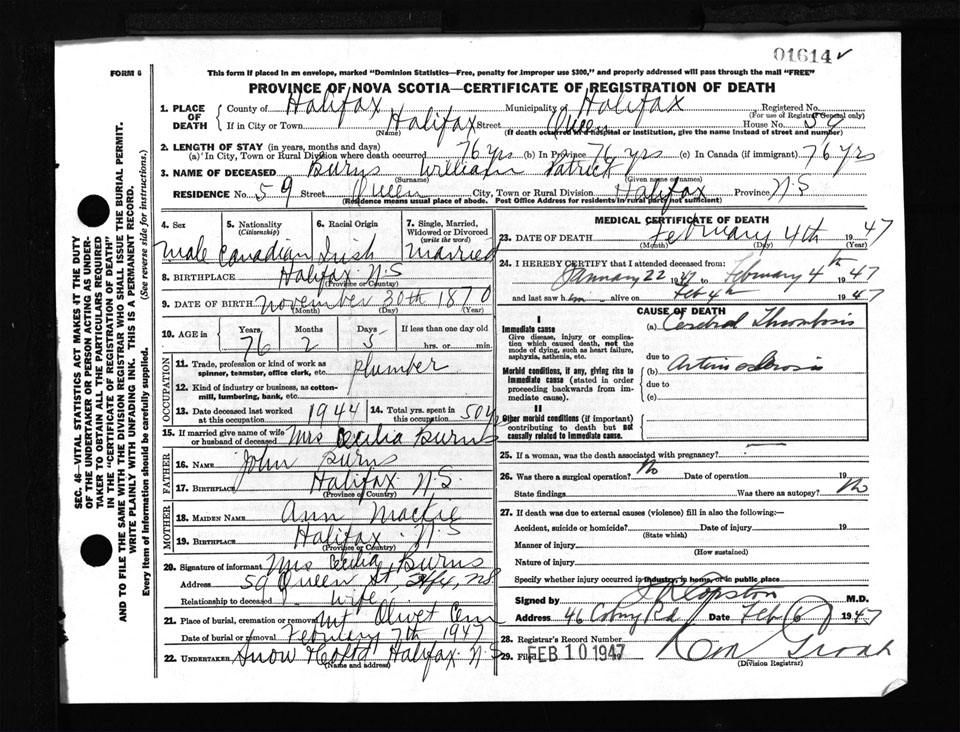 01614 ✓
FORM 6
This form if placed in an envelope, marked "Dominion Statistics—Free, penalty for improper use $300," and properly addressed will pass through the mail "FREE"
PROVINCE OF NOVA SCOTIA—CERTIFICATE OF REGISTRATION OF DEATH
1. PLACE OF DEATH { County of Halifax Municipality of Halifax Registered No.
(For use of Registrar General only)
If in City or Town Halifax Street Queen House No. 59
(Name) (If death occurred in hospital or institution, give the name instead of street and number)
2. LENGTH OF STAY (in years, months and days)
(a) In City, Town or Rural Division where death occurred 76 yrs (b) In Province 76 yrs (c) In Canada (if immigrant) 76 yrs
3. NAME OF DECEASED Burns William Patrick
(Surname) (Given name or names)
RESIDENCE No. 59 Street Queen City, Town or Rural Division Halifax Province N.S
(Residence means usual place of abode. Post Office Address for residents in rural parts not sufficient)
4. Sex 5. Nationality (Citizenship) 6. Racial Origin 7. Single, Married, Widowed or Divorced (write the word)
Male Canadian Irish Married
8. BIRTHPLACE Halifax N.S
(Province or Country)
9. DATE OF BIRTH November 30th 1870
(Month) (Day) (Year)
10. AGE in { Years Months Days If less than one day old
76 2 5 hrs. or min.
OCCUPATION
11. Trade, profession or kind of work as spinner, teamster, office clerk, etc. plumber
12. Kind of industry or business, as cotton-mill, lumbering, bank, etc.
13. Date deceased last worked at this occupation 1944 14. Total yrs. spent in this occupation 50 y
15. If married give name of wife or husband of deceased Mrs Cecilia Burns
FATHER
16. NAME John Burns
17. BIRTHPLACE Halifax N.S.
(Province or Country)
MOTHER
18. MAIDEN NAME Ann Mackie
19. BIRTHPLACE Halifax N.S
(Province or Country)
20. Signature of informant Mrs Cecilia Burns
Address 59 Queen St, Hfx, N.S.
Relationship to deceased wife
21. Place of burial, cremation or removal Mt Olivet Cem
Date of burial or removal February 7th 1947
22. UNDERTAKER Snow Halifax N.S
(Name and address)
MEDICAL CERTIFICATE OF DEATH
23. DATE OF DEATH February 4th 1947
(Month) (Day) (Year)
24. I HEREBY CERTIFY that I attended deceased from:
January 22 1947 to February 4th 1947
and last saw him alive on Feb 4th 1947
CAUSE OF DEATH
I
Immediate cause (a) Cerebral Thrombosis
Give disease, injury or complication which caused death, not the mode of dying, such as heart failure, asphyxia, asthenia, etc.
due to
Morbid conditions, if any, giving rise to immediate cause (stated in order proceeding backwards from immediate cause).
(b) Arteriosclerosis
due to
(c)
II
Other morbid conditions (if important) contributing to death but not causally related to immediate cause.
25. If a woman, was the death associated with pregnancy? —
26. Was there a surgical operation? No Date of operation 19
State findings Was there an autopsy? No
27. If death was due to external causes (violence) fill in also the following:—
Accident, suicide or homicide? Date of injury 19
(State which)
Manner of injury
(How sustained)
Nature of injury
Specify whether injury occurred in industry, in home, or in public place
Signed by M.D.
Address 46 Coburg Rd Date Feb 6 1947
28. Registrar's Record Number
29. Filed FEB 10 1947
(Division Registrar)
SEC. 46—VITAL STATISTICS ACT MAKES IT THE DUTY
OF THE UNDERTAKER OR PERSON ACTING AS UNDER-
TAKER TO OBTAIN ALL THE PARTICULARS REQUIRED
IN THE "CERTIFICATE OF REGISTRATION OF DEATH"
AND TO FILE THE SAME WITH THE DIVISION REGISTRAR WHO SHALL ISSUE THE BURIAL PERMIT.
WRITE PLAINLY WITH UNFADING INK. THIS IS A PERMANENT RECORD.
Every item of Information should be carefully supplied. (See reverse side for instructions.)